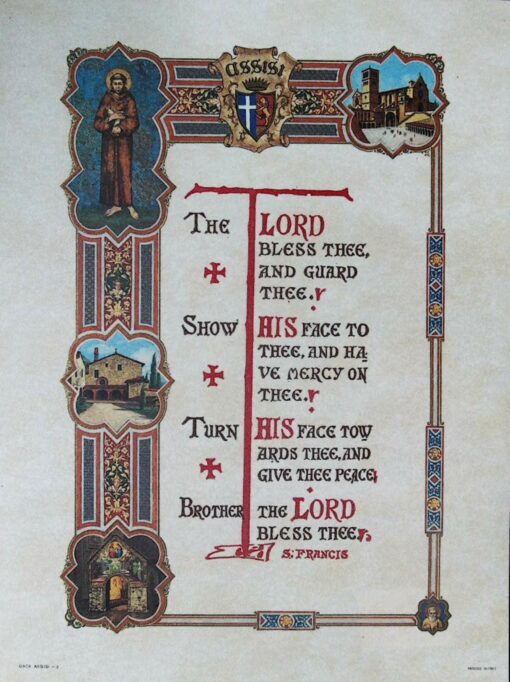 ASSISI
THE LORD
BLESS THEE,
AND GUARD
THEE.
SHOW HIS FACE TO
THEE, AND HA
VE MERCY ON
THEE.
TURN HIS FACE TOW
ARDS THEE, AND
GIVE THEE PEACE
BROTHER THE LORD
BLESS THEE
S. FRANCIS